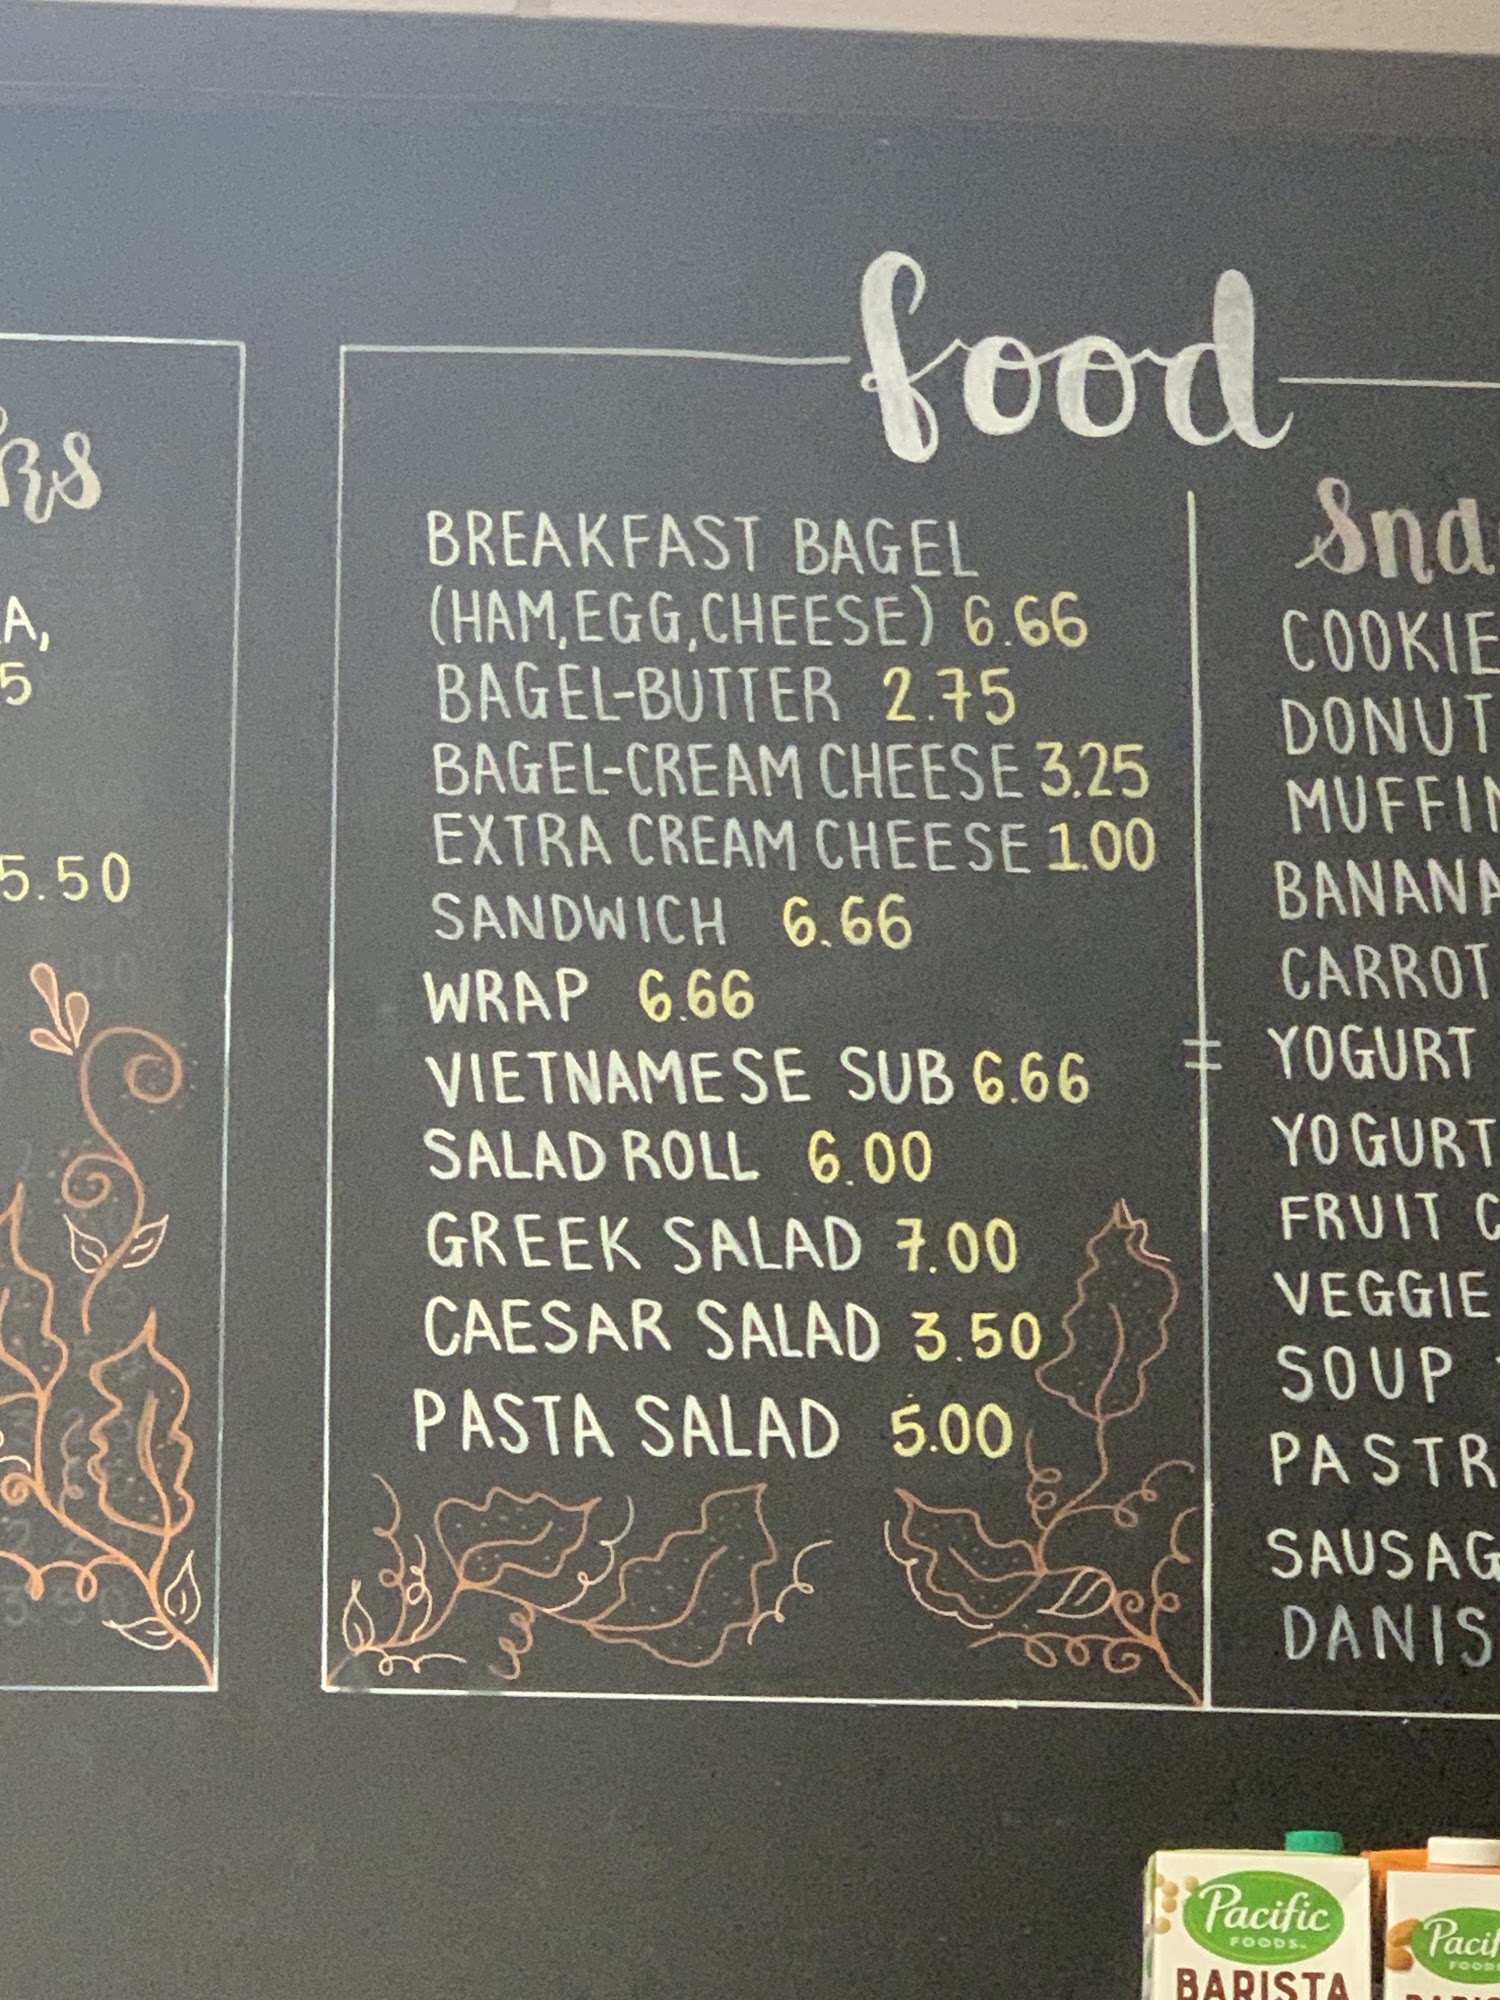 food
BREAKFAST BAGEL
(HAM,EGG,CHEESE) 6.66
BAGEL-BUTTER 2.75
BAGEL-CREAM CHEESE 3.25
EXTRA CREAM CHEESE 1.00
SANDWICH 6.66
WRAP 6.66
VIETNAMESE SUB 6.66
SALAD ROLL 6.00
GREEK SALAD 7.00
CAESAR SALAD 3.50
PASTA SALAD 5.00
A,
5
5.50
COOKIE
DONUT
MUFFIN
BANANA
CARROT
YOGURT
YOGURT
FRUIT C
VEGGIE
SOUP
PASTR
SAUSAG
DANIS
Pacific
FOODS
BARISTA
Pacif
FOOD